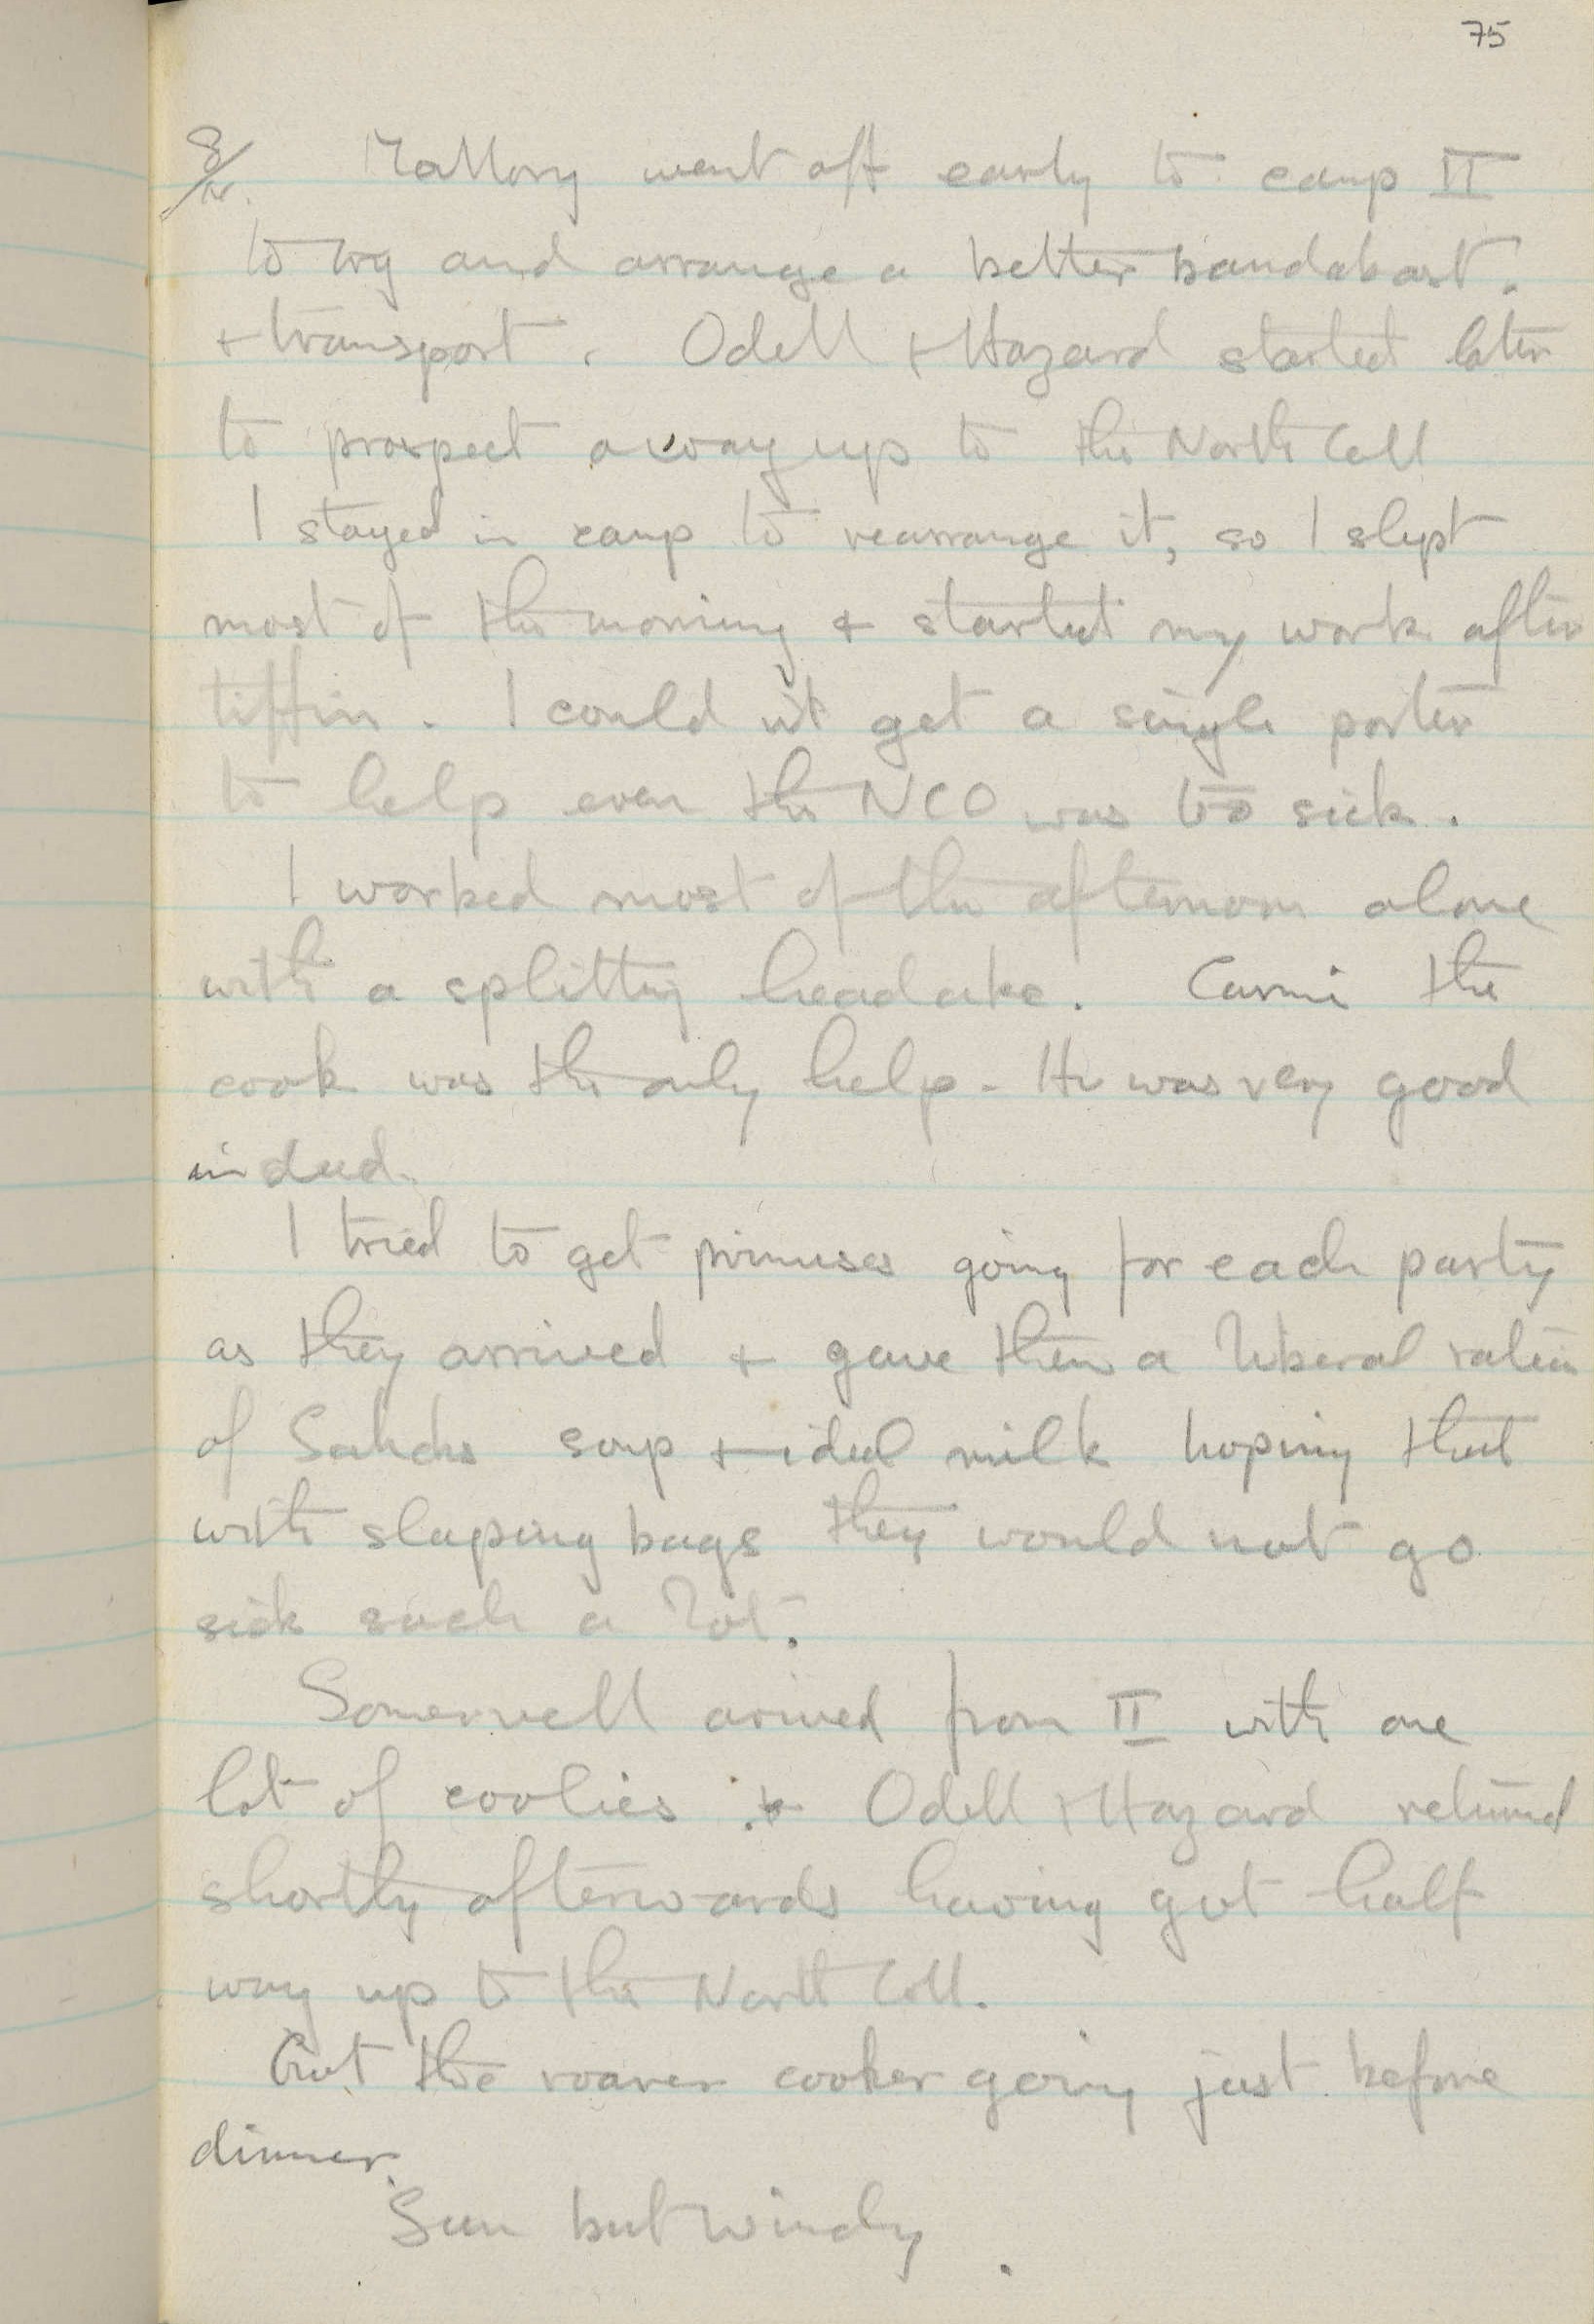 75
8/IV. Mallory went off early to camp II
to try and arrange a better bandabast.
+ transport. Odell + Hazard started later
to prospect a way up to the North Coll
I stayed in camp to rearrange it, so I slept
most of the morning + started my work after
tiffin. I could n't get a single porter
to help even the NCO was too sick.
I worked most of the afternoon alone
with a splitting headake. Carmi the
cook was the only help - He was very good
indeed.
I tried to get primuses going for each party
as they arrived + gave them a liberal ration
of Sahibs soup + ideal milk hoping that
with sleeping bags they would not go
sick such a lot.
Somervell arrived from II with one
lot of coolies . + Odell + Hazard returned
shortly afterwards having got half
way up to the North Coll.
Got the roarer cooker going just before
dinner.
Sun but windy.